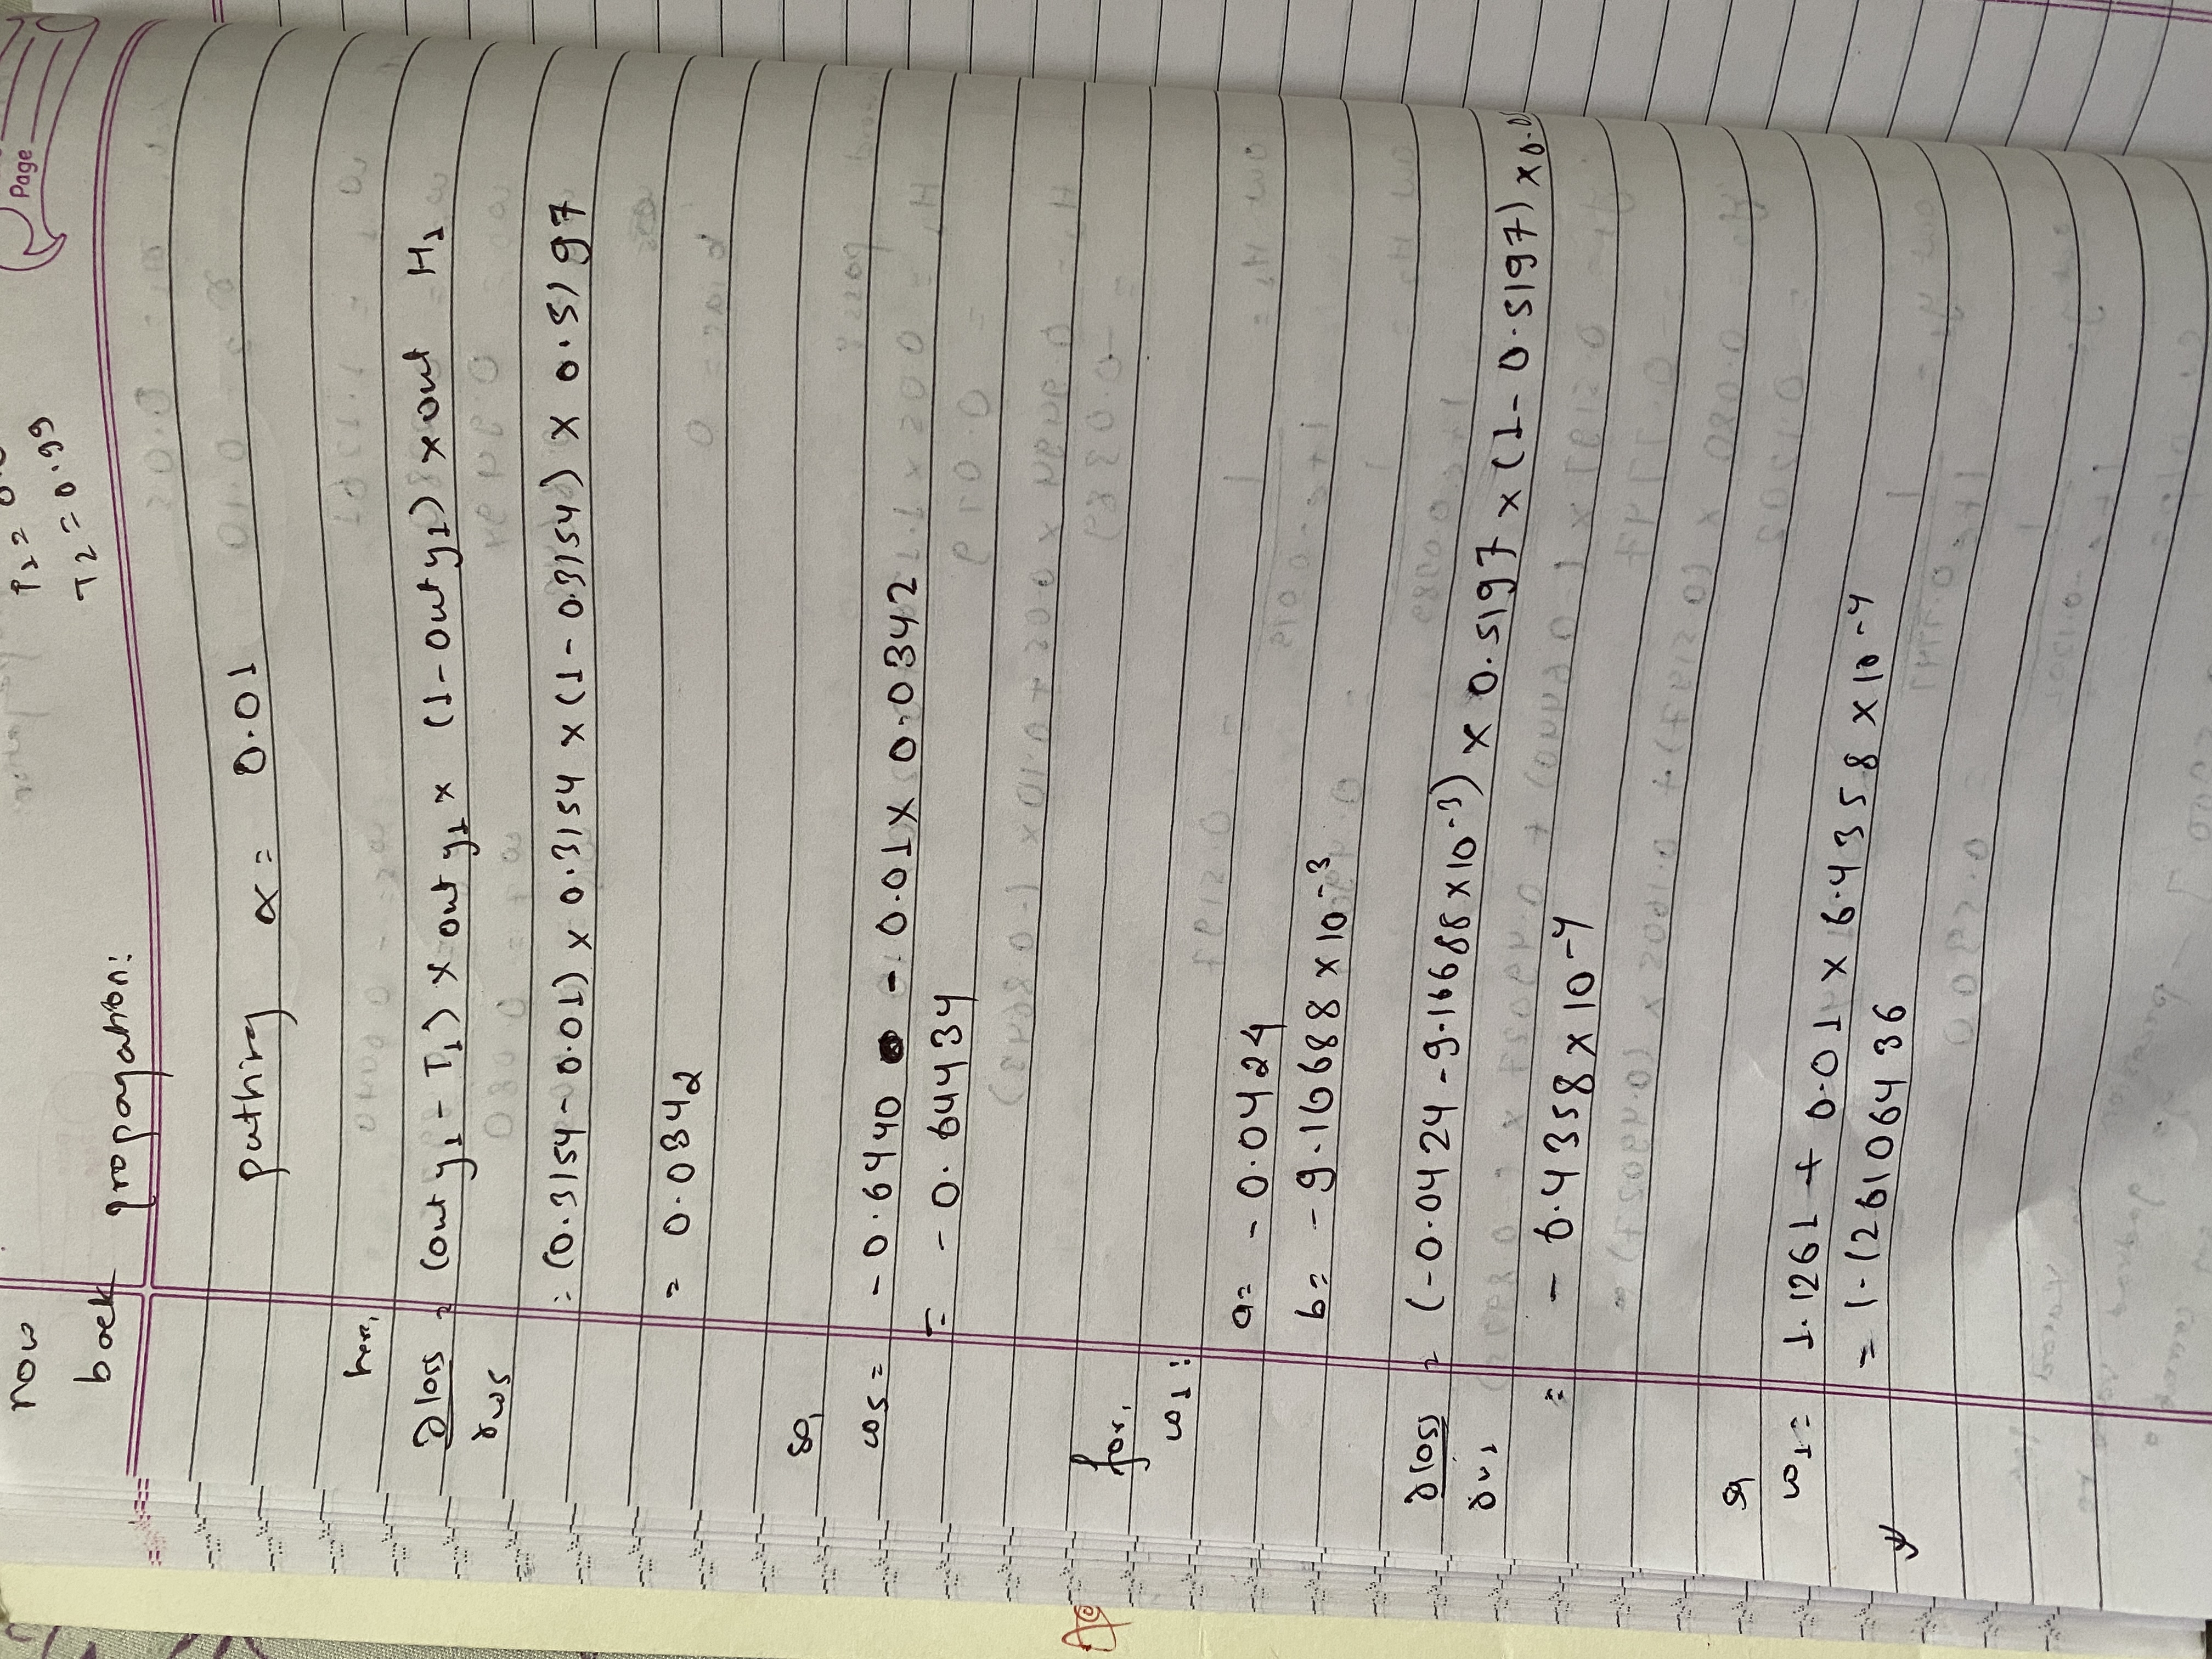 Page
now
T2 = 0.99
back propagation:
putting α = 0.01
here,
∂loss = (out y1 - T1) × out y1 × (1 - out y1) × out H1
∂w5
= (0.3154 - 0.01) × 0.3154 × (1 - 0.3154) × 0.5197
= 0.0342
so,
w5 = -0.6440 - 0.01 × 0.0342
= -0.64434
for,
w1:
a = -0.0424
b = -9.16688 × 10^-3
∂loss = (-0.0424 - 9.16688 × 10^-3) × 0.5197 × (1 - 0.5197) ×
∂w1
= - 6.4358 × 10^-4
so
w1 = 1.1261 + 0.01 × 6.4358 × 10^-4
= 1.126106436